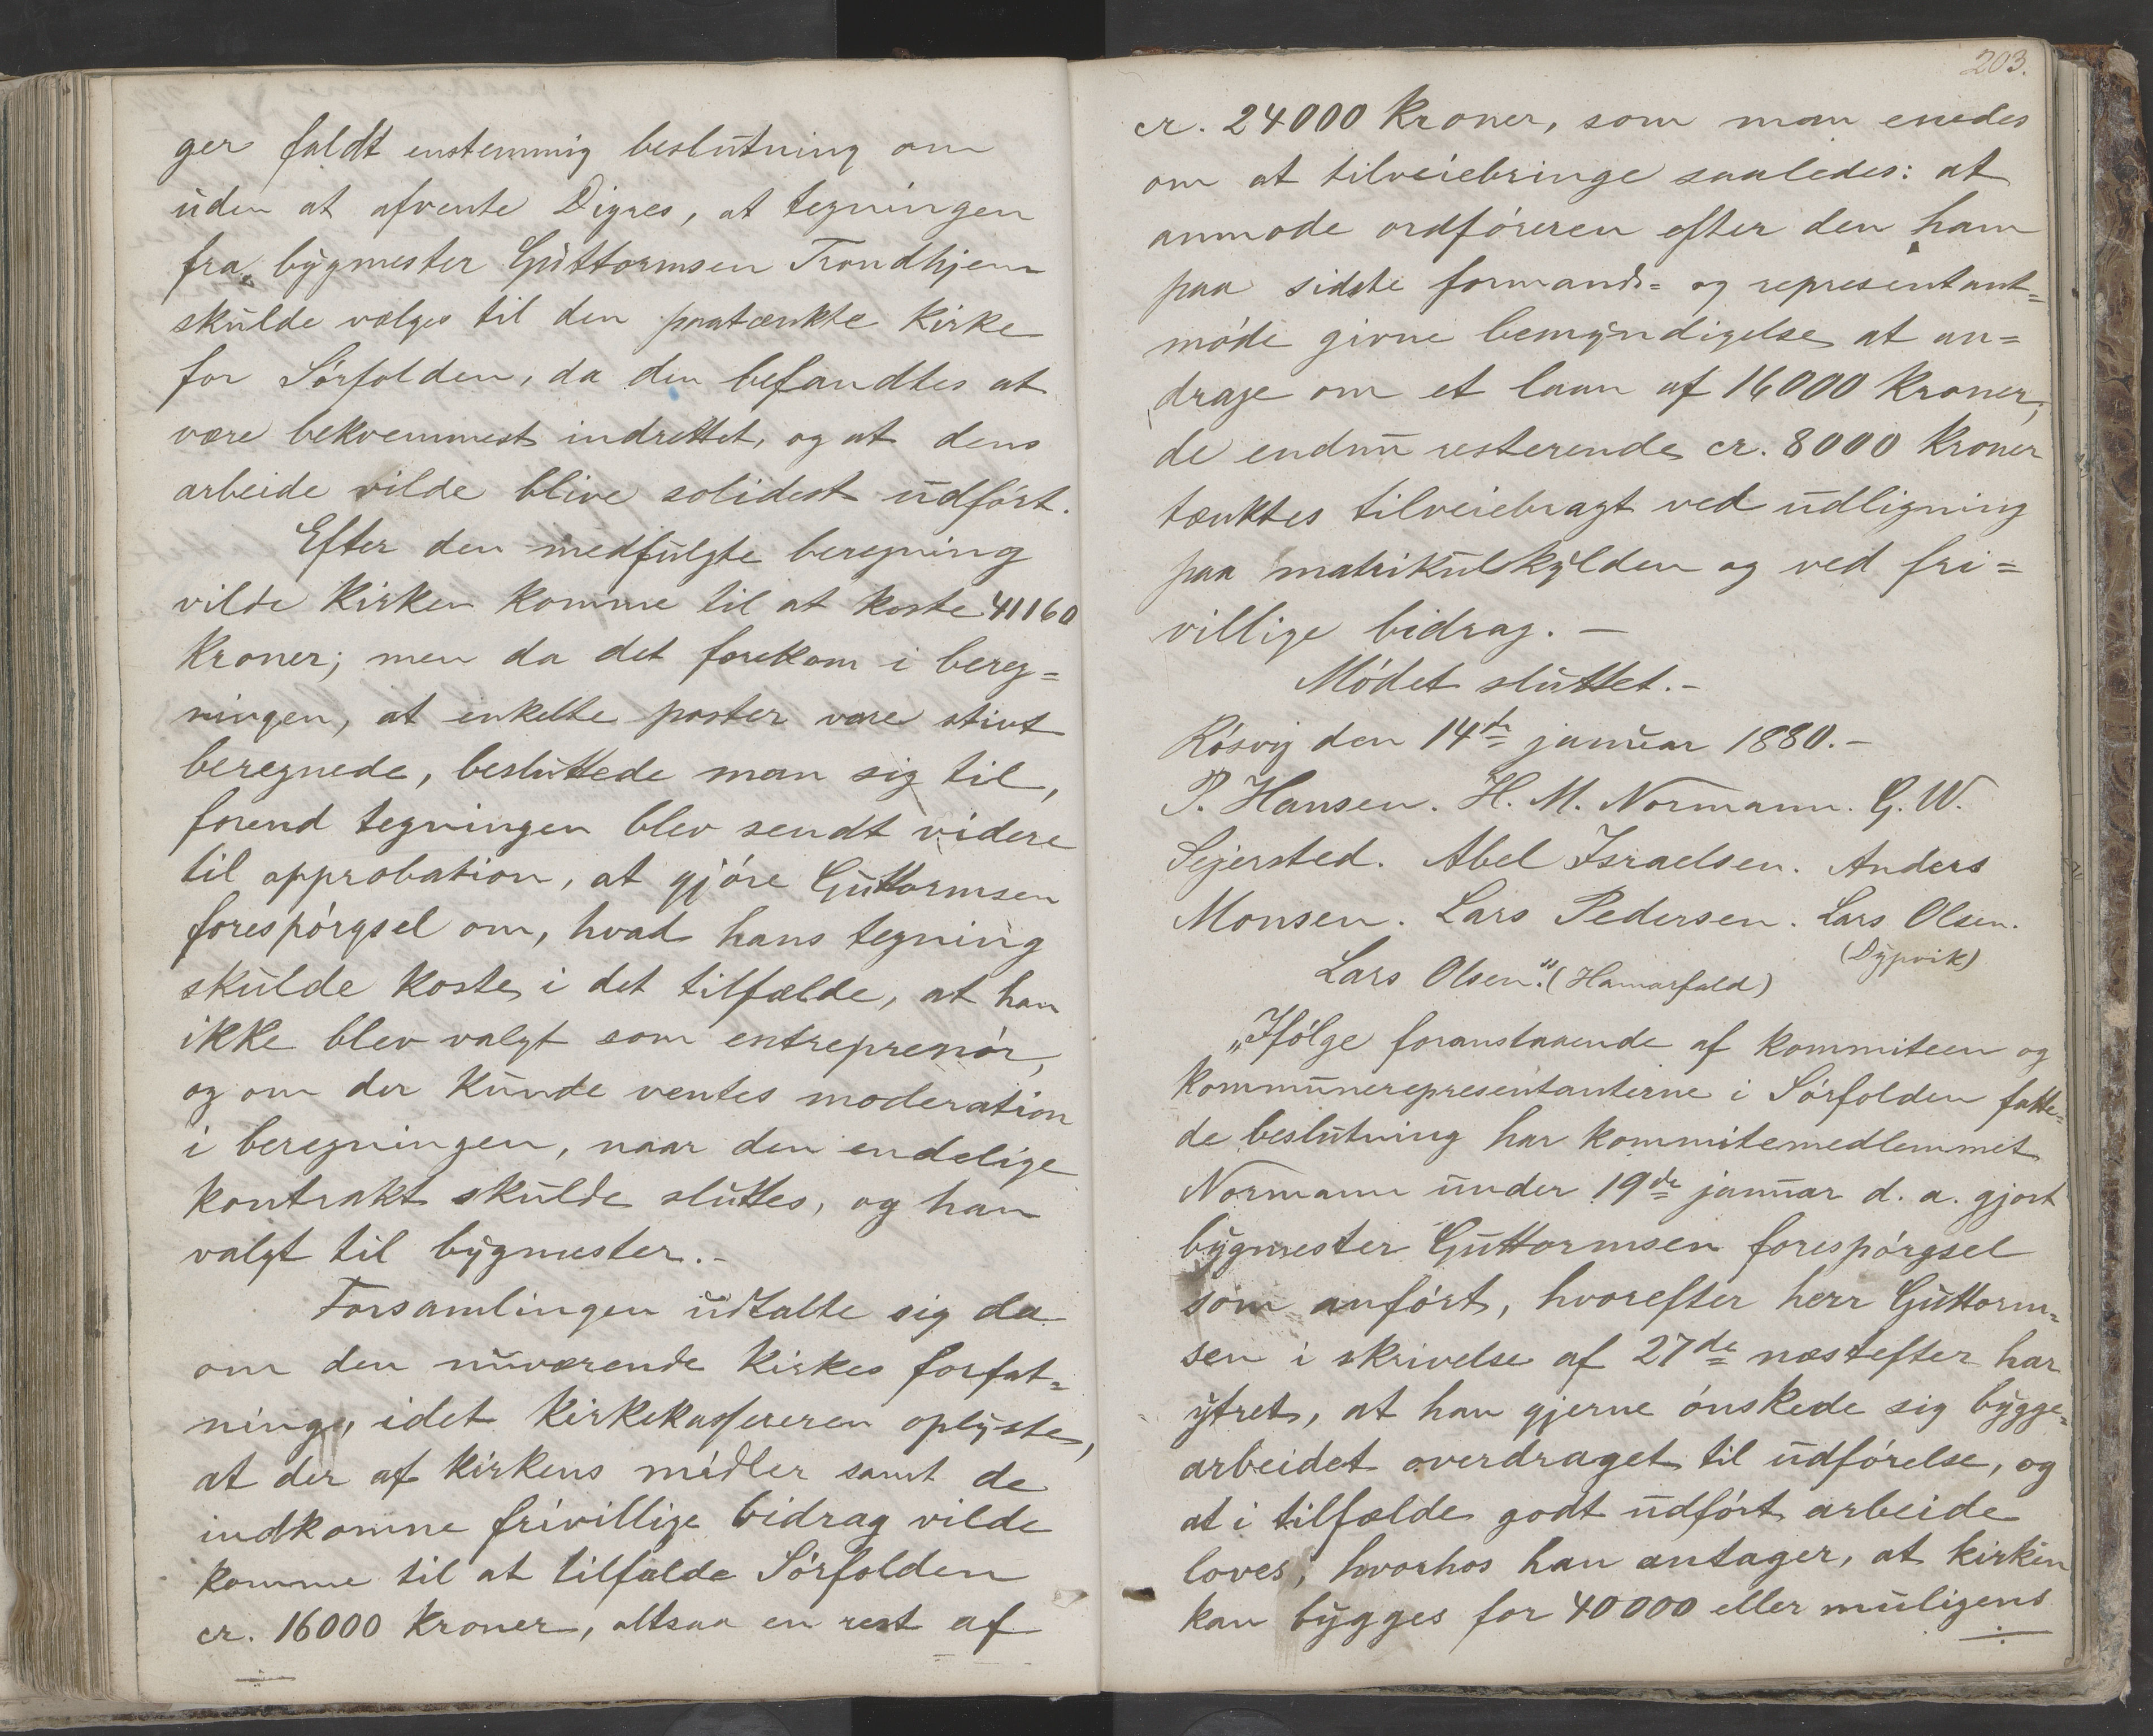 ger faldt enstemmig beslutning om
uden at afvente Digres, at tegningen
fra bygmester Guttormsen Trondhjem
skulde vælges til den paatænkte Kirke
for Sórfolden, da den befandtes at
være bekvemmest indrettet, og at dens
arbeide vilde blive solidest udfórt.
Efter den medfulgte beregning
vilde Kirken komme til at koste 41160
Kroner; men da det forekom i bereg=
ningen, at enkelte poster vare stivt
beregnede, besluttede man sig til,
forend tegningen blev sendt videre
til approbation, at gjóre Guttormsen
forespórgsel om, hvad hans tegning
skulde koste i det tilfælde, at han
ikke blev valgt som entreprenór,
og om der kunde ventes moderation
i beregningen, naar den endelige
kontrakt skulde sluttes, og han
valgt til bygmester.-
Forsamlingen udtalte sig da
om den nuværende Kirkes forfat=
ninge, idet Kirkekassereren oplyste,
at der af Kirkens midler samt de
indkomne frivillige bidrag vilde
komme til at tilfalde Sórfolden
cr. 16000 Kroner, altsaa en rest af
203.
cr. 24000 Kroner, som man enedes
om at tilveiebringe saaledes: at
anmode ordfóreren efter den ham
paa sidste formands= og representant=
móde givne bemyndigelse at an=
drage om et laan af 16000 Kroner;
de endnu resterende cr. 8000 Kroner
tænktes tilveiebragt ved udligning
paa matrikulskylden og ved fri=
villige bidrag. —
Módet sluttet.-
Rósvig den 14de januar 1880.-
P. Hansen. H. M. Normann. G. W.
Sejersted. Abel Israelsen. Anders
Monsen. Lars Pedersen. Lars Olsen.
(Dypvik)
Lars Olsen." (Hamarfald)
„Ifólge foranstaaende af kommiteen og
kommunerepresentanterne i Sórfolden fatte=
de beslutning har kommitemedlemmet
Normann under 19de januar d. a. gjort
bygmester Guttormsen forespórgsel
som anfórt, hvorefter herr Guttorm=
sen i skrivelse af 27de næstefter har
ytret, at han gjerne ónskede sig bygge=
arbeidet overdraget til udfórelse, og
at i tilfælde godt udfórt arbeide
loves, hvorhos han antager, at kirken
kan bygges for 40000 eller muligens